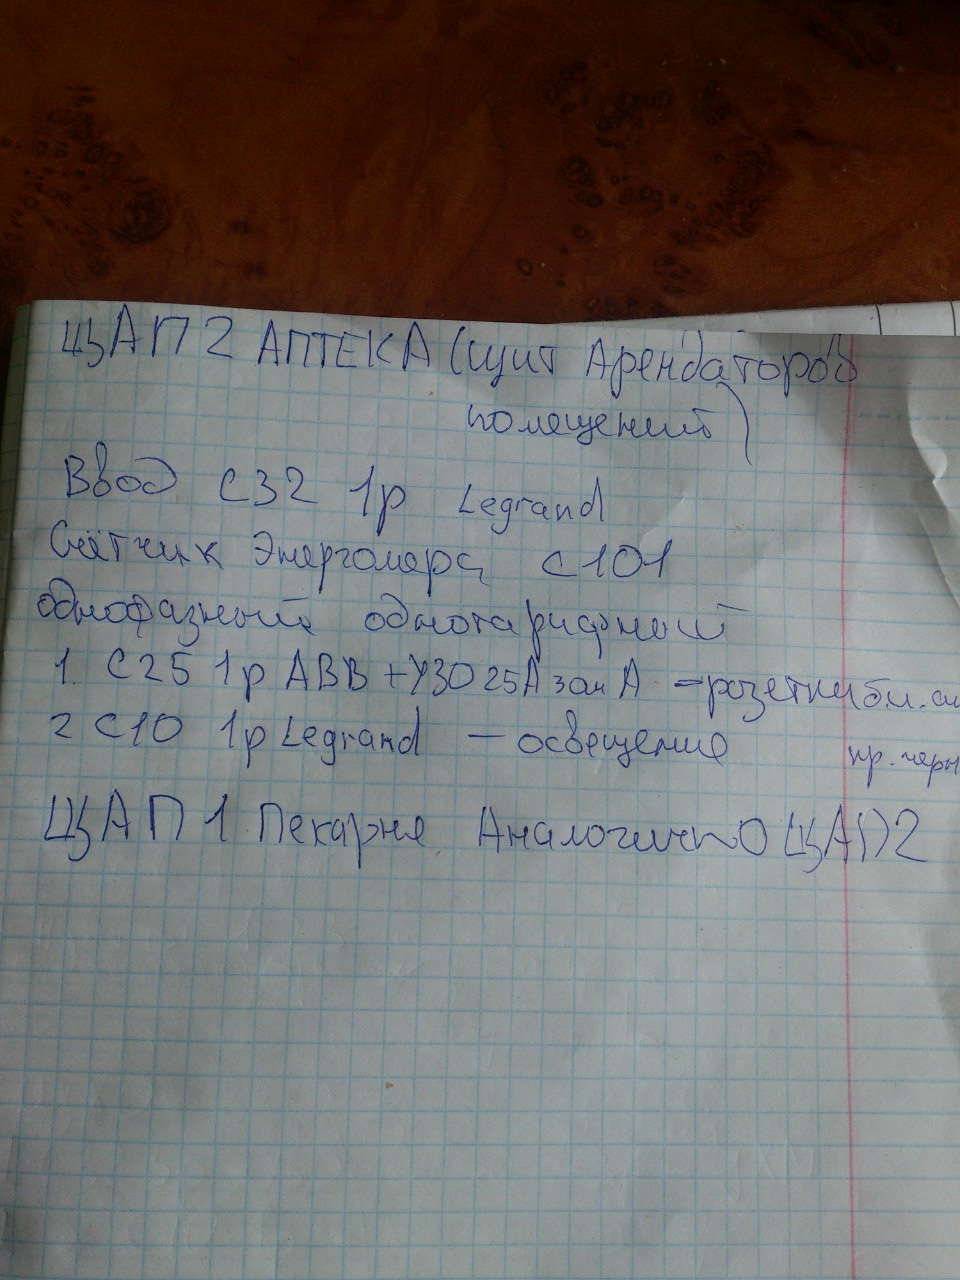 ЩАП 2 АПТЕКА (щит Арендаторов
помещений)
Ввод С32 1р Legrand
Счётчик Энергомера С101
однофазный однотарифный
1. С25 1р АВВ + УЗО 25А 30м А - розетки
2 С10 1р Legrand - освещение
пр. черн
ЩАП 1 Пекарня Аналогично ЩАП 2